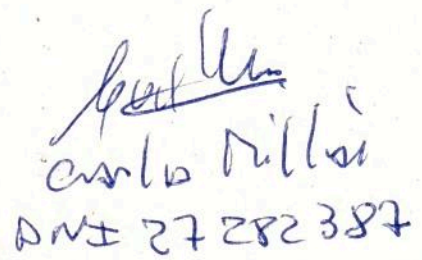 Carlo Millisi
DNI 27282387